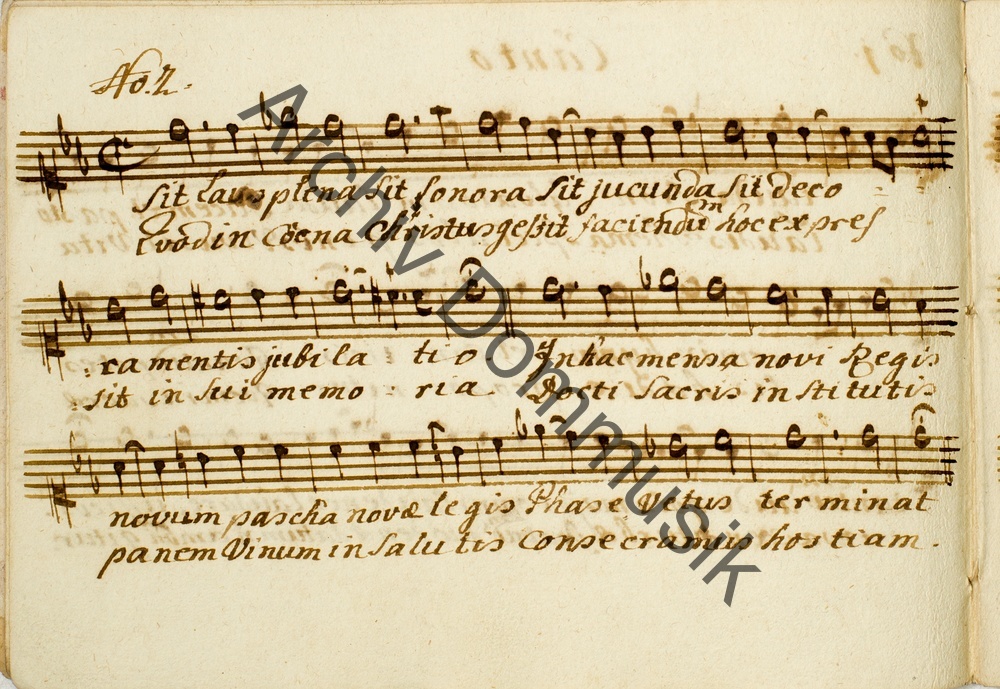 No. 2.
Sit laus plena sit sonora sit jucunda sit deco
Quod in Coena Christus gessit faciendum hoc expres
ra mentis jubila tio. In hac mensa novi Regis
sit in sui memo ria Docti Sacris institutis
novum pascha novæ legis Phase Vetus ter minat
panem Vinum in Salu tis Conse cramus hos tiam.
Archiv Dommusik